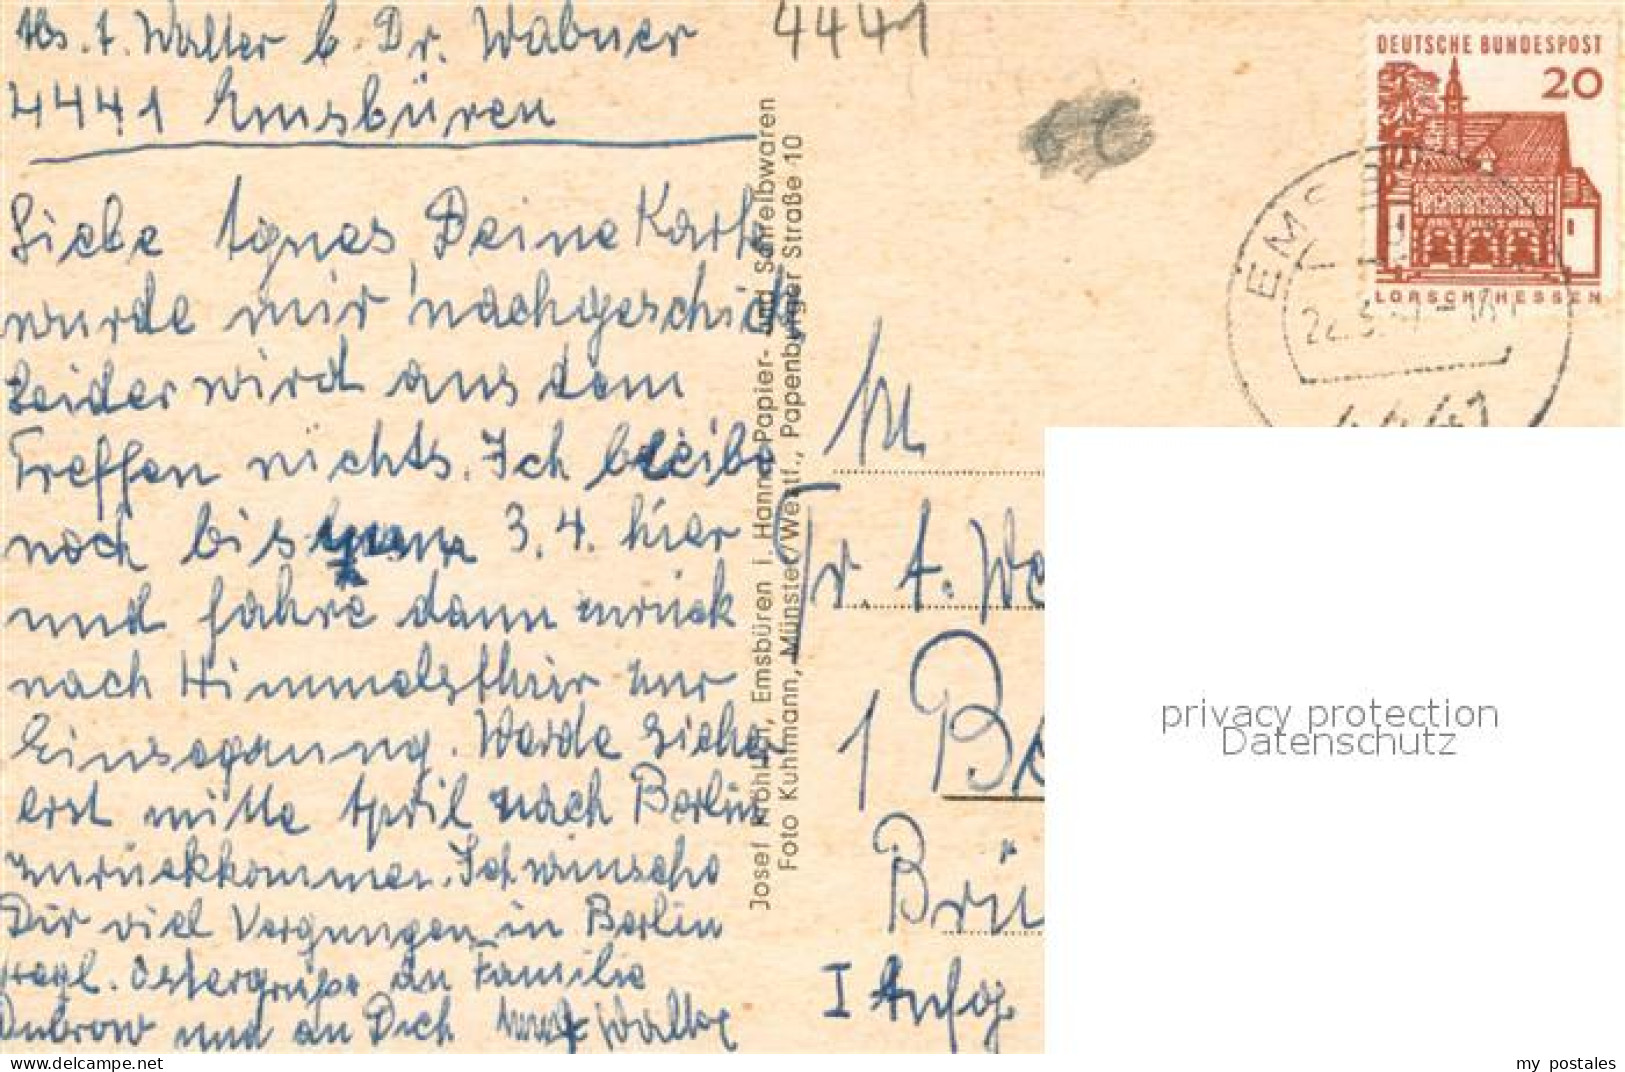 Abs. A. Walter b. Dr. Wabner
4441 Emsbüren
Liebe Agnes, Deine Karte
wurde mir nachgeschickt
Leider wird aus dem
Treffen nichts. Ich bleibe
noch bis 3. 4. hier
und fahre dann zurück
nach Himmelsthür zur
Einsegnung. Werde sicher
erst mitte April nach Berlin
zurückkommen. Ich wünsche
Dir viel Vergnügen in Berlin
Ostergrüße an Familie
Dubrow und an Dich
4441
Josef Kröhnert, Emsbüren i. Hann. Papier- und Schreibwaren
Foto Kuhlmann, Münster/Westf., Papenburger Straße 10
DEUTSCHE BUNDESPOST
20
LORSCH/HESSEN
EMSBÜREN
4441
An
Fr. A. We
1 Be
Brü
privacy protection
Datenschutz
my postales